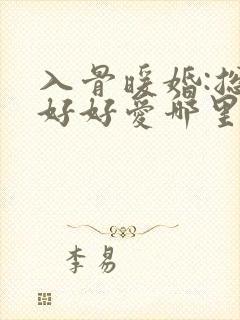 入骨暖婚:总
好好爱哪里
李易